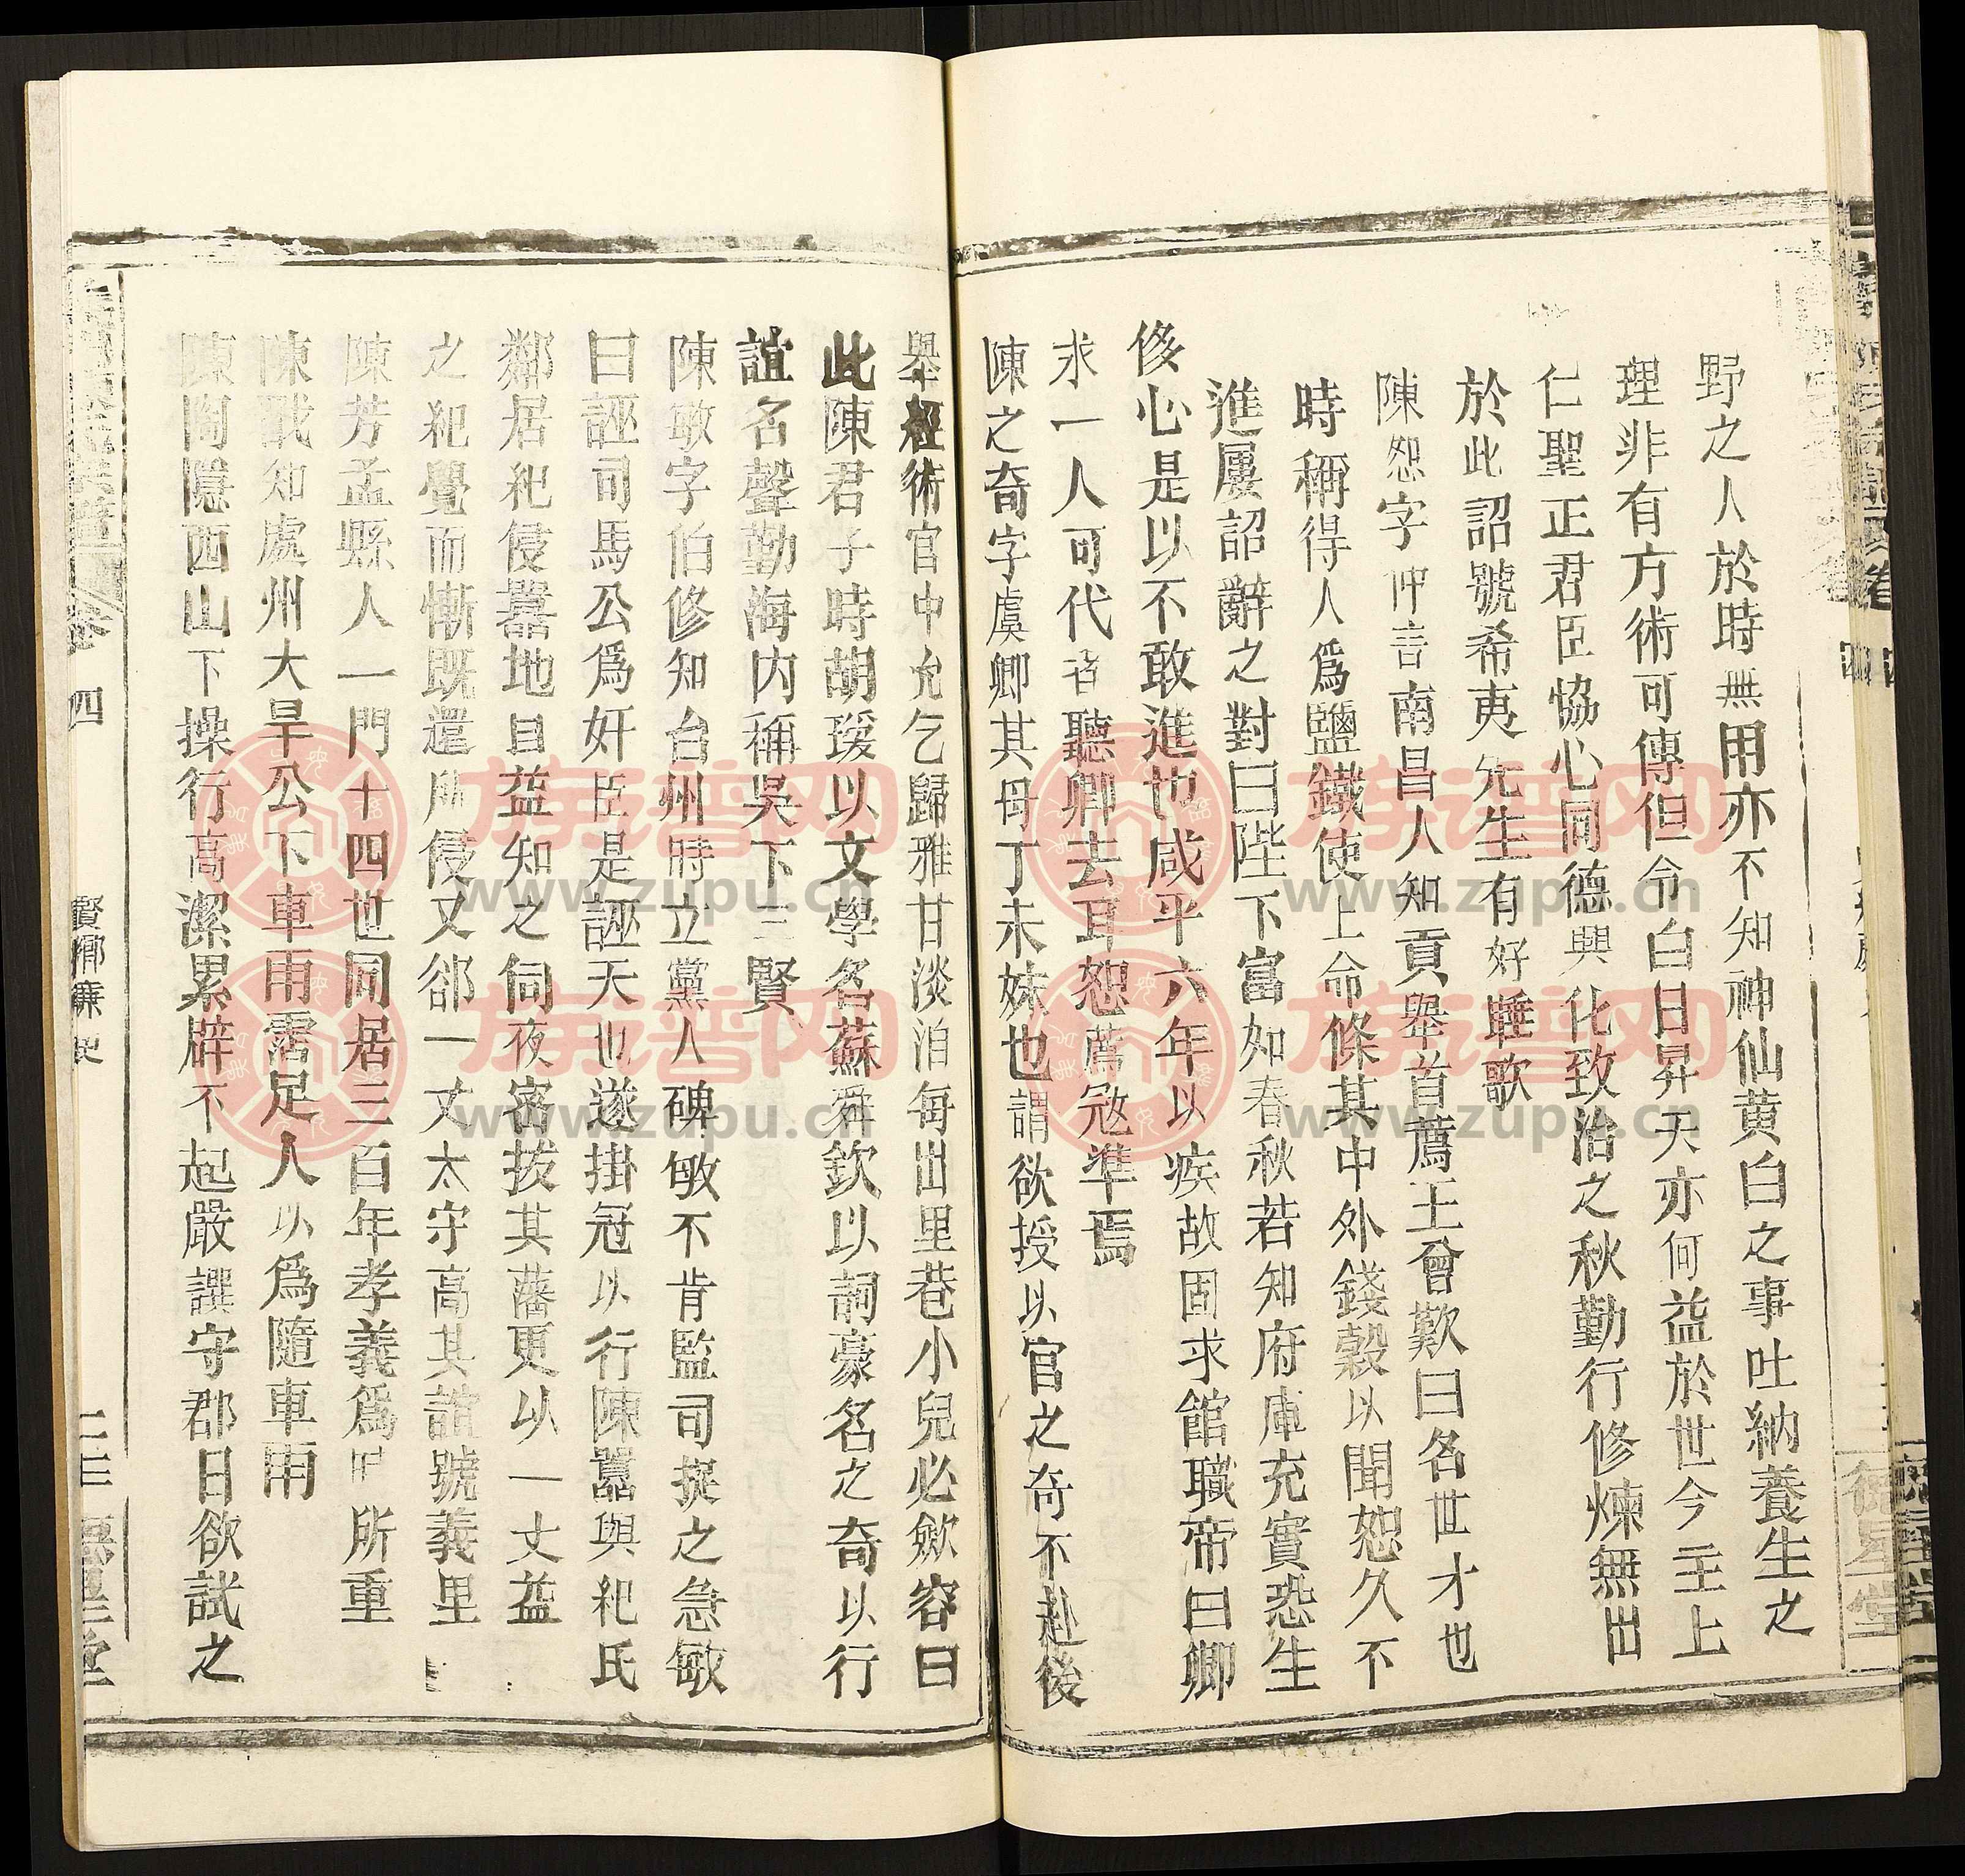 野之人於時無用亦不知神仙黄白之事吐納養生之
理非有方術可傳但令白日昇天亦何益於世今主上
仁聖正君臣恊心同德興化致治之秋勤行修煉無出
於此詔號希夷先生有好睡歌
陳恕字仲言南昌人知貢舉首薦王曾歎曰名世才也
時稱得人爲鹽鐵使上命條其中外錢穀以聞恕久不
進屢詔辭之對曰陛下富如春秋若知府庫充實恐生
侈心是以不敢進也咸平六年以疾故固求館職帝曰卿
求一人可代者聽卿去耳恕薦冦準焉
陳之奇字虞卿其母丁未妹也謂欲授以官之奇不赴後
舉經術官中允乞歸雅甘淡泊每出里巷小兒必歛容曰
此陳君子時胡瑗以文學名蘇舜欽以詞豪名之奇以行
誼名聲勤海内稱吳下三賢
陳敏字伯修知台州時立黨人碑敏不肯監司捉之急敏
曰誣司馬公爲奸臣是誣天也遂掛冠以行陳囂與祀氏
鄰居祀侵囂地目益知之伺夜密拔其藩更以一丈益
之祀覺而慚既還所侵又郤一丈太守高其誼號義里
陳芳孟縣人一門十四世同居三百年孝義爲 所重
陳戩知處州大旱公下車雨霑足人以爲隨車雨
陳陶隱西山下操行高潔累辟不起嚴譔守郡日欲試之
卷 四
賢鄉簾史
二三
德星堂
四
德星堂
族谱网
www.zupu.cn
族谱网
www.zupu.cn
族谱网
www.zupu.cn
族谱网
www.zupu.cn